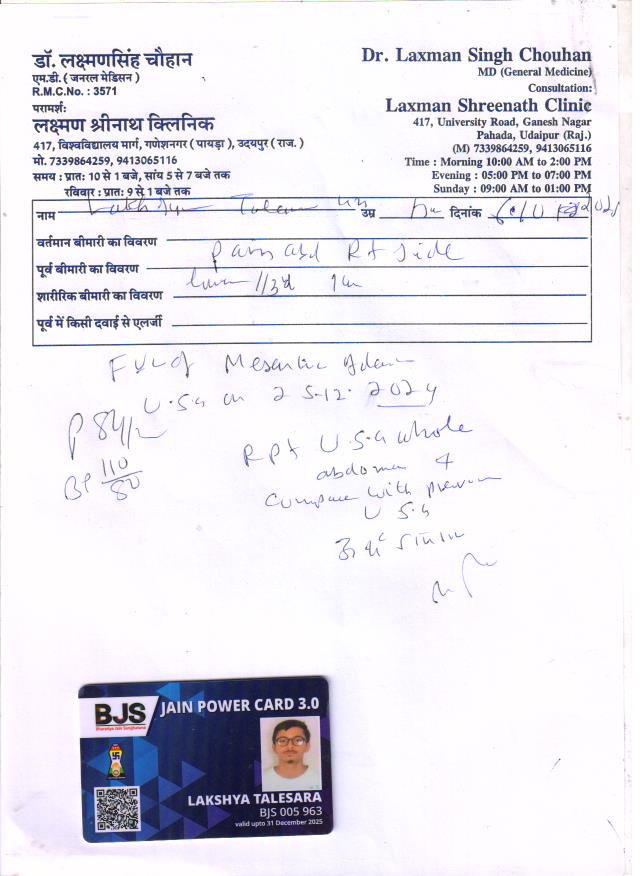 डॉ. लक्ष्मणसिंह चौहान
एम.डी. ( जनरल मेडिसन )
R.M.C.No. : 3571
परामर्श:
लक्ष्मण श्रीनाथ क्लिनिक
417, विश्वविद्यालय मार्ग, गणेशनगर ( पायड़ा ), उदयपुर ( राज. )
मो. 7339864259, 9413065116
समय : प्रातः 10 से 1 बजे, सांय 5 से 7 बजे तक
रविवार : प्रातः 9 से 1 बजे तक
Dr. Laxman Singh Chouhan
MD (General Medicine)
Consultation:
Laxman Shreenath Clinic
417, University Road, Ganesh Nagar
Pahada, Udaipur (Raj.)
(M) 7339864259, 9413065116
Time : Morning 10:00 AM to 2:00 PM
Evening : 05:00 PM to 07:00 PM
Sunday : 09:00 AM to 01:00 PM
नाम उम्र दिनांक
वर्तमान बीमारी का विवरण
पूर्व बीमारी का विवरण Pain abd Rt side
शारीरिक बीमारी का विवरण
पूर्व में किसी दवाई से एलर्जी
U.S.G on 25.12.2024
P 84/
BP 110/80
Rpt U.S.G whole
abdomen &
compare with previous
U S G
BJS JAIN POWER CARD 3.0
Bharatiya Jain Sanghatana
LAKSHYA TALESARA
BJS 005 963
valid upto 31 December 2025